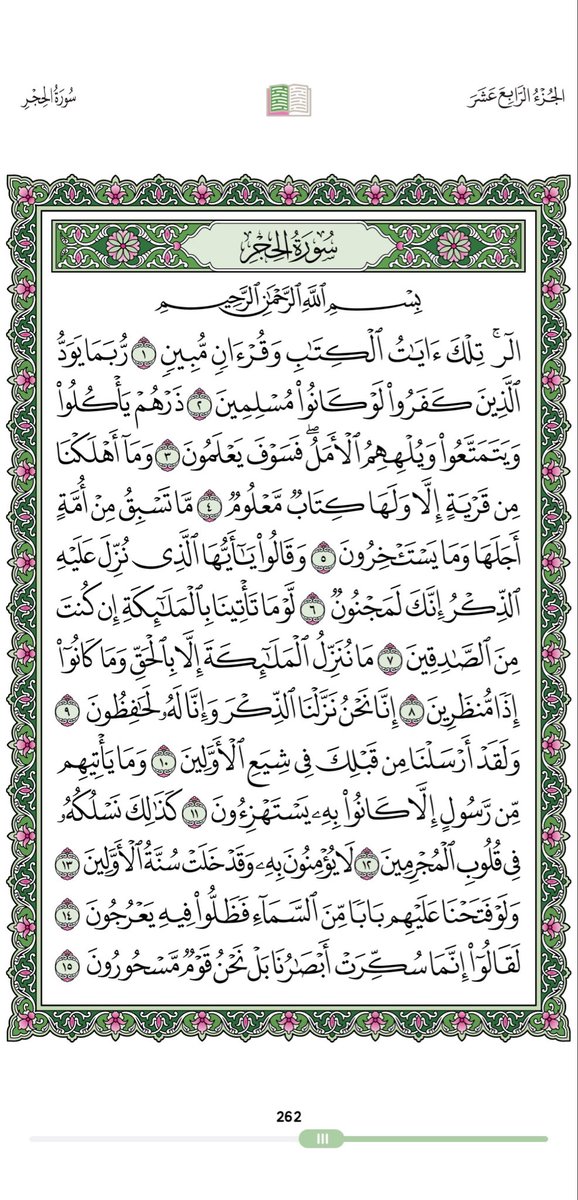 الجُزْءُ الرَّابِعَ عَشَرَ
سُورَةُ الحِجْرِ
سُورَةُ الحِجْرِ
بِسْمِ اللَّهِ الرَّحْمَٰنِ الرَّحِيمِ
الٓرۚ تِلْكَ ءَايَٰتُ ٱلْكِتَٰبِ وَقُرْءَانٍ مُّبِينٍ ١ رُّبَمَا يَوَدُّ
ٱلَّذِينَ كَفَرُوا۟ لَوْ كَانُوا۟ مُسْلِمِينَ ٢ ذَرْهُمْ يَأْكُلُوا۟
وَيَتَمَتَّعُوا۟ وَيُلْهِهِمُ ٱلْأَمَلُۖ فَسَوْفَ يَعْلَمُونَ ٣ وَمَآ أَهْلَكْنَا
مِن قَرْيَةٍ إِلَّا وَلَهَا كِتَابٌ مَّعْلُومٌ ٤ مَّا تَسْبِقُ مِنْ أُمَّةٍ
أَجَلَهَا وَمَا يَسْتَـْٔخِرُونَ ٥ وَقَالُوا۟ يَٰٓأَيُّهَا ٱلَّذِى نُزِّلَ عَلَيْهِ
ٱلذِّكْرُ إِنَّكَ لَمَجْنُونٌ ٦ لَّوْ مَا تَأْتِينَا بِٱلْمَلَٰٓئِكَةِ إِن كُنتَ
مِنَ ٱلصَّٰدِقِينَ ٧ مَا نُنَزِّلُ ٱلْمَلَٰٓئِكَةَ إِلَّا بِٱلْحَقِّ وَمَا كَانُوٓا۟
إِذًا مُّنظَرِينَ ٨ إِنَّا نَحْنُ نَزَّلْنَا ٱلذِّكْرَ وَإِنَّا لَهُۥ لَحَٰفِظُونَ ٩
وَلَقَدْ أَرْسَلْنَا مِن قَبْلِكَ فِى شِيَعِ ٱلْأَوَّلِينَ ١٠ وَمَا يَأْتِيهِم
مِّن رَّسُولٍ إِلَّا كَانُوا۟ بِهِۦ يَسْتَهْزِءُونَ ١١ كَذَٰلِكَ نَسْلُكُهُۥ
فِى قُلُوبِ ٱلْمُجْرِمِينَ ١٢ لَا يُؤْمِنُونَ بِهِۦ وَقَدْ خَلَتْ سُنَّةُ ٱلْأَوَّلِينَ ١٣
وَلَوْ فَتَحْنَا عَلَيْهِم بَابًا مِّنَ ٱلسَّمَآءِ فَظَلُّوا۟ فِيهِ يَعْرُجُونَ ١٤
لَقَالُوٓا۟ إِنَّمَا سُكِّرَتْ أَبْصَٰرُنَا بَلْ نَحْنُ قَوْمٌ مَّسْحُورُونَ ١٥
262